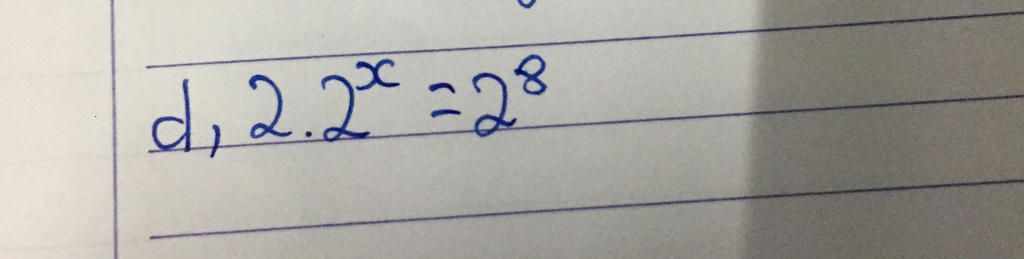 d, 2.2ˣ = 2⁸